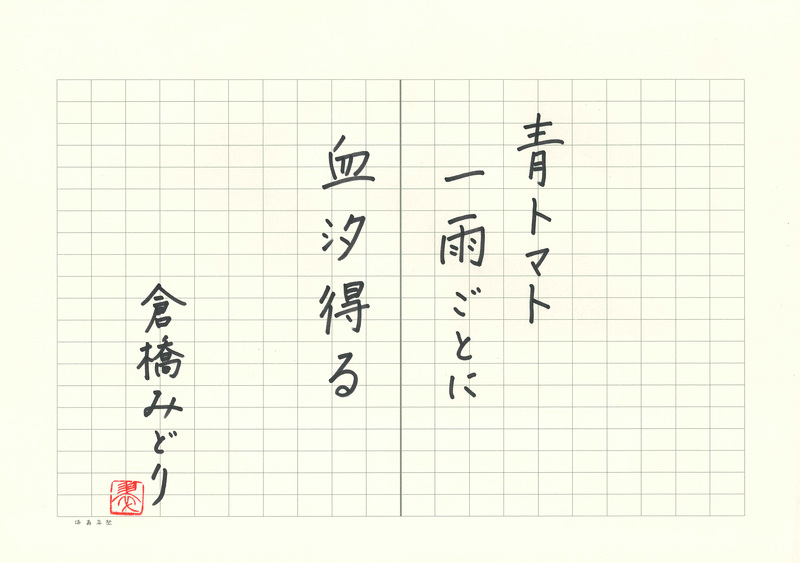 青トマト
一雨ごとに
血汐得る
倉橋みどり